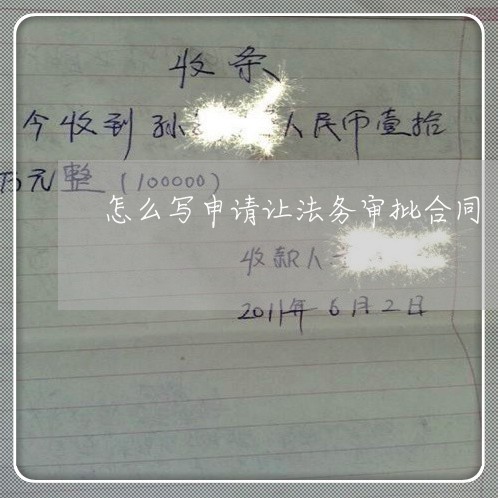 收条
今收到孙 人民币壹拾
万元整（100000）
怎么写申请让法务审批合同
收款人
2011年6月2日